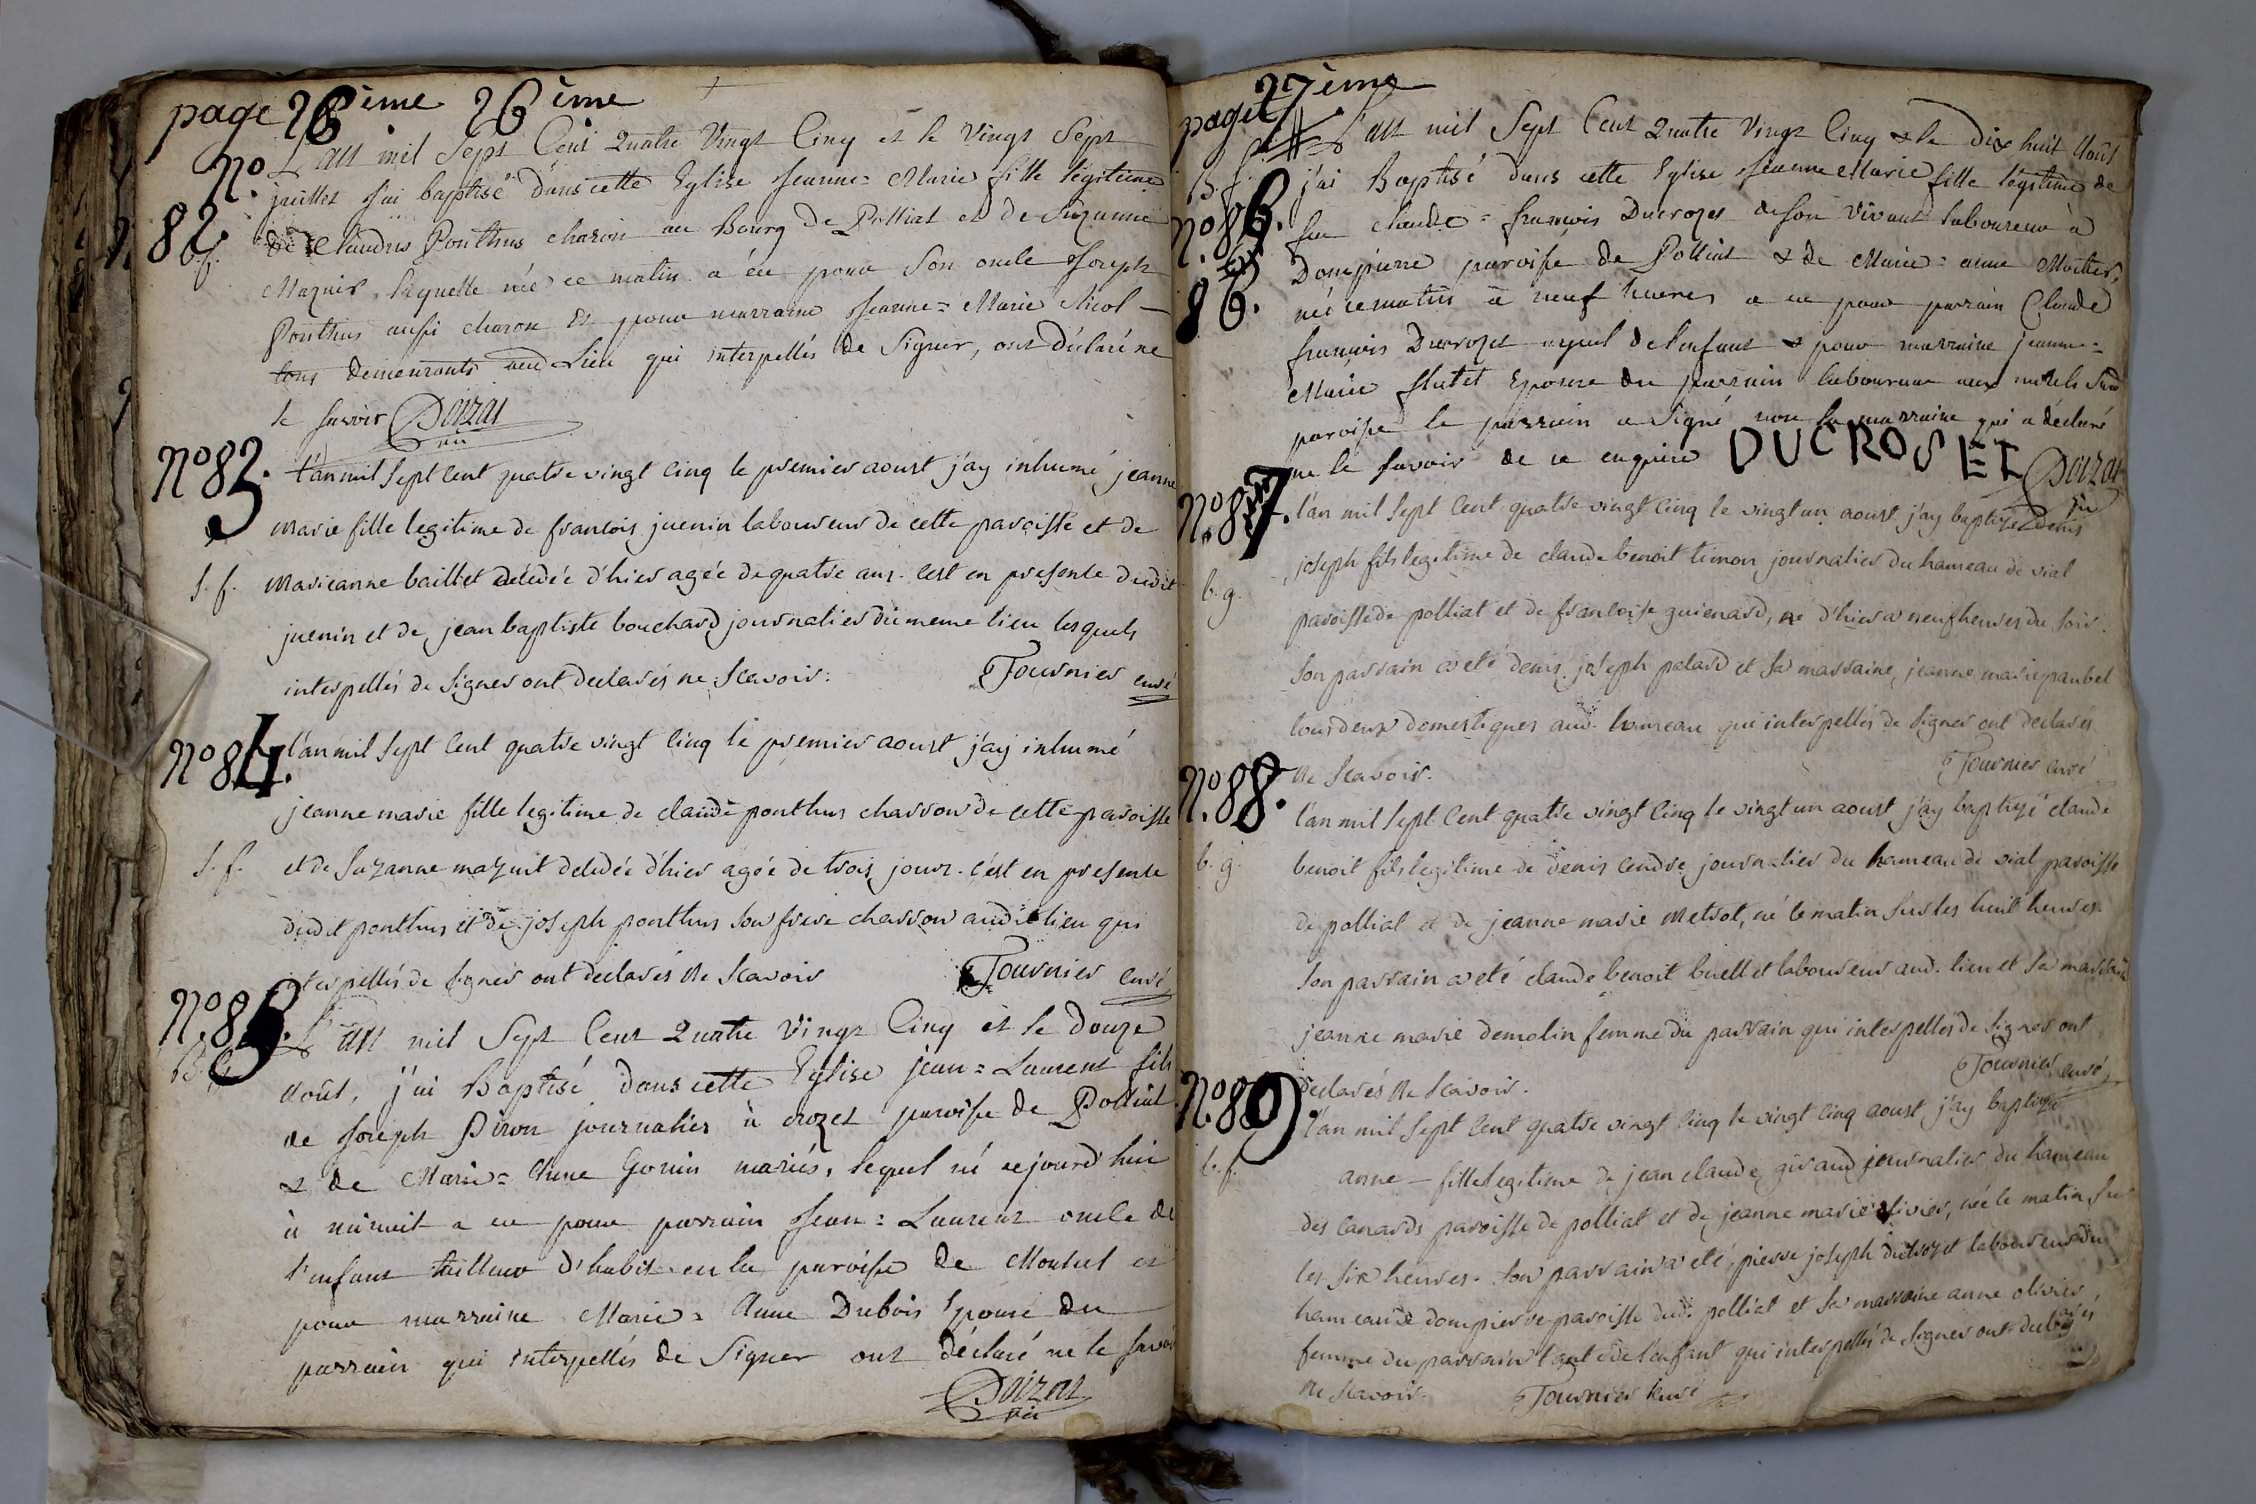 page 26ème 26ème
No L'an mil Sept Cent Quatre Vingt Cinq et le Vingt Sept
82. juillet j'ai baptisé dans cette Eglise Jeanne=Marie fille légitime
b.f. de Claudius Ponthus charon au Bourg de Polliat et de Suzanne
Maznit, laquelle née ce matin a eu pour Son oncle Joseph
Ponthus aussi charon et pour marraine Jeanne=Marie Nicol
tous demeurants aud Lieu qui interpellés de Signer, ont déclaré ne
le savoir Doizat
vic
No 83. l'an mil sept cent quatre vingt cinq le premier aoust j'ay inhumé jeanne
marie fille legitime de francois juenin laboureur de cette paroisse et de
s.f. marieanne baillet decedée d'hier agée de quatre ans. c'est en presence dudit
juenin et de jean baptiste bouchard journalier du meme lieu lesquels
interpellés de signer ont declarés ne scavoir. Tournier curé
No 84. l'an mil sept cent quatre vingt cinq le premier aoust j'ay inhumé
jeanne marie fille legitime de claude ponthus charron de cette paroisse
s.f. et de suzanne mazuit decedée d'hier agée de trois jours. c'est en presence
dudit ponthus et de joseph ponthus son frere charron audit lieu qui
interpellés de signer ont declarés ne scavoir Tournier curé
No 85. L'an mil Sept Cent Quatre Vingt Cinq et le douze
Août, j'ai Baptisé dans cette Eglise jean=Laurent fils
de Joseph Piron journalier à crozet paroisse de Polliat
& de Marie=Anne Gonin mariés, lequel né cejourd'hui
à minuit a eu pour parrain Jean=Laurent oncle de
l'enfant tailleur d'habit en la paroisse de Montcel et
pour marraine Marie=Anne Dubois Epouse du
parrain qui interpellés de Signer ont déclaré ne le savoir
Doizat
vic
page 27ème
L'an mil Sept Cent Quatre Vingt Cinq & le dix huit Août
B.f. j'ai Baptisé dans cette Eglise Jeanne Marie fille légitime de
No 86. feu claude=françois Ducrozet de son vivant laboureur à
No Dompierre paroisse de Polliat & de Marie=anne Morier,
86. née ce matin à neuf heures a eu pour parrain Claude
françois Ducrozet ayeul de l'enfant & pour marraine jeanne=
Marie flutet Epouse du parrain laboureur aux murels Sud
paroisse le parrain a Signé non la marraine qui a déclaré
ne le savoir de ce enquise DUCROSET Doizat
vic
No 87. l'an mil sept cent quatre vingt cinq le vingt un aoust j'ay baptizé denis
joseph fils legitime de claude benoit timon journalier du hameau de vial
b.g. paroisse de polliat et de francoise guienard, né d'hier a neuf heures du soir.
son parrain a eté denis joseph palard et sa marraine, jeanne marie paubel
tous deux domestiques aud. hameau qui interpellés de signer ont declarés
ne scavoir. Tournier curé
No 88. l'an mil sept cent quatre vingt cinq le vingt un aoust j'ay baptizé claude
b.g. benoit fils legitime de denis cendre journalier du hameau de vial paroisse
de polliat et de jeanne marie metrot, né le matin sur les huit heures.
son parrain a eté claude benoit buellet laboureur aud. lieu et sa marraine
jeanne marie demolin femme du parrain qui interpellés de signer ont
declarés ne scavoir. Tournier curé
No 89. l'an mil sept cent quatre vingt cinq le vingt cinq aoust j'ay baptizé
b.f. anne - fille legitime de jean claude giraud journalier du hameau
des canards paroisse de polliat et de jeanne marie olivier, née le matin sur
les six heures. son parrain a eté pierre joseph ducrozet laboureur du
hameau de dompierre paroisse dud. polliat et sa marraine anne olivier
femme du parrain tante de l'enfant qui interpellés de signer ont declarés
ne scavoir. Tournier curé